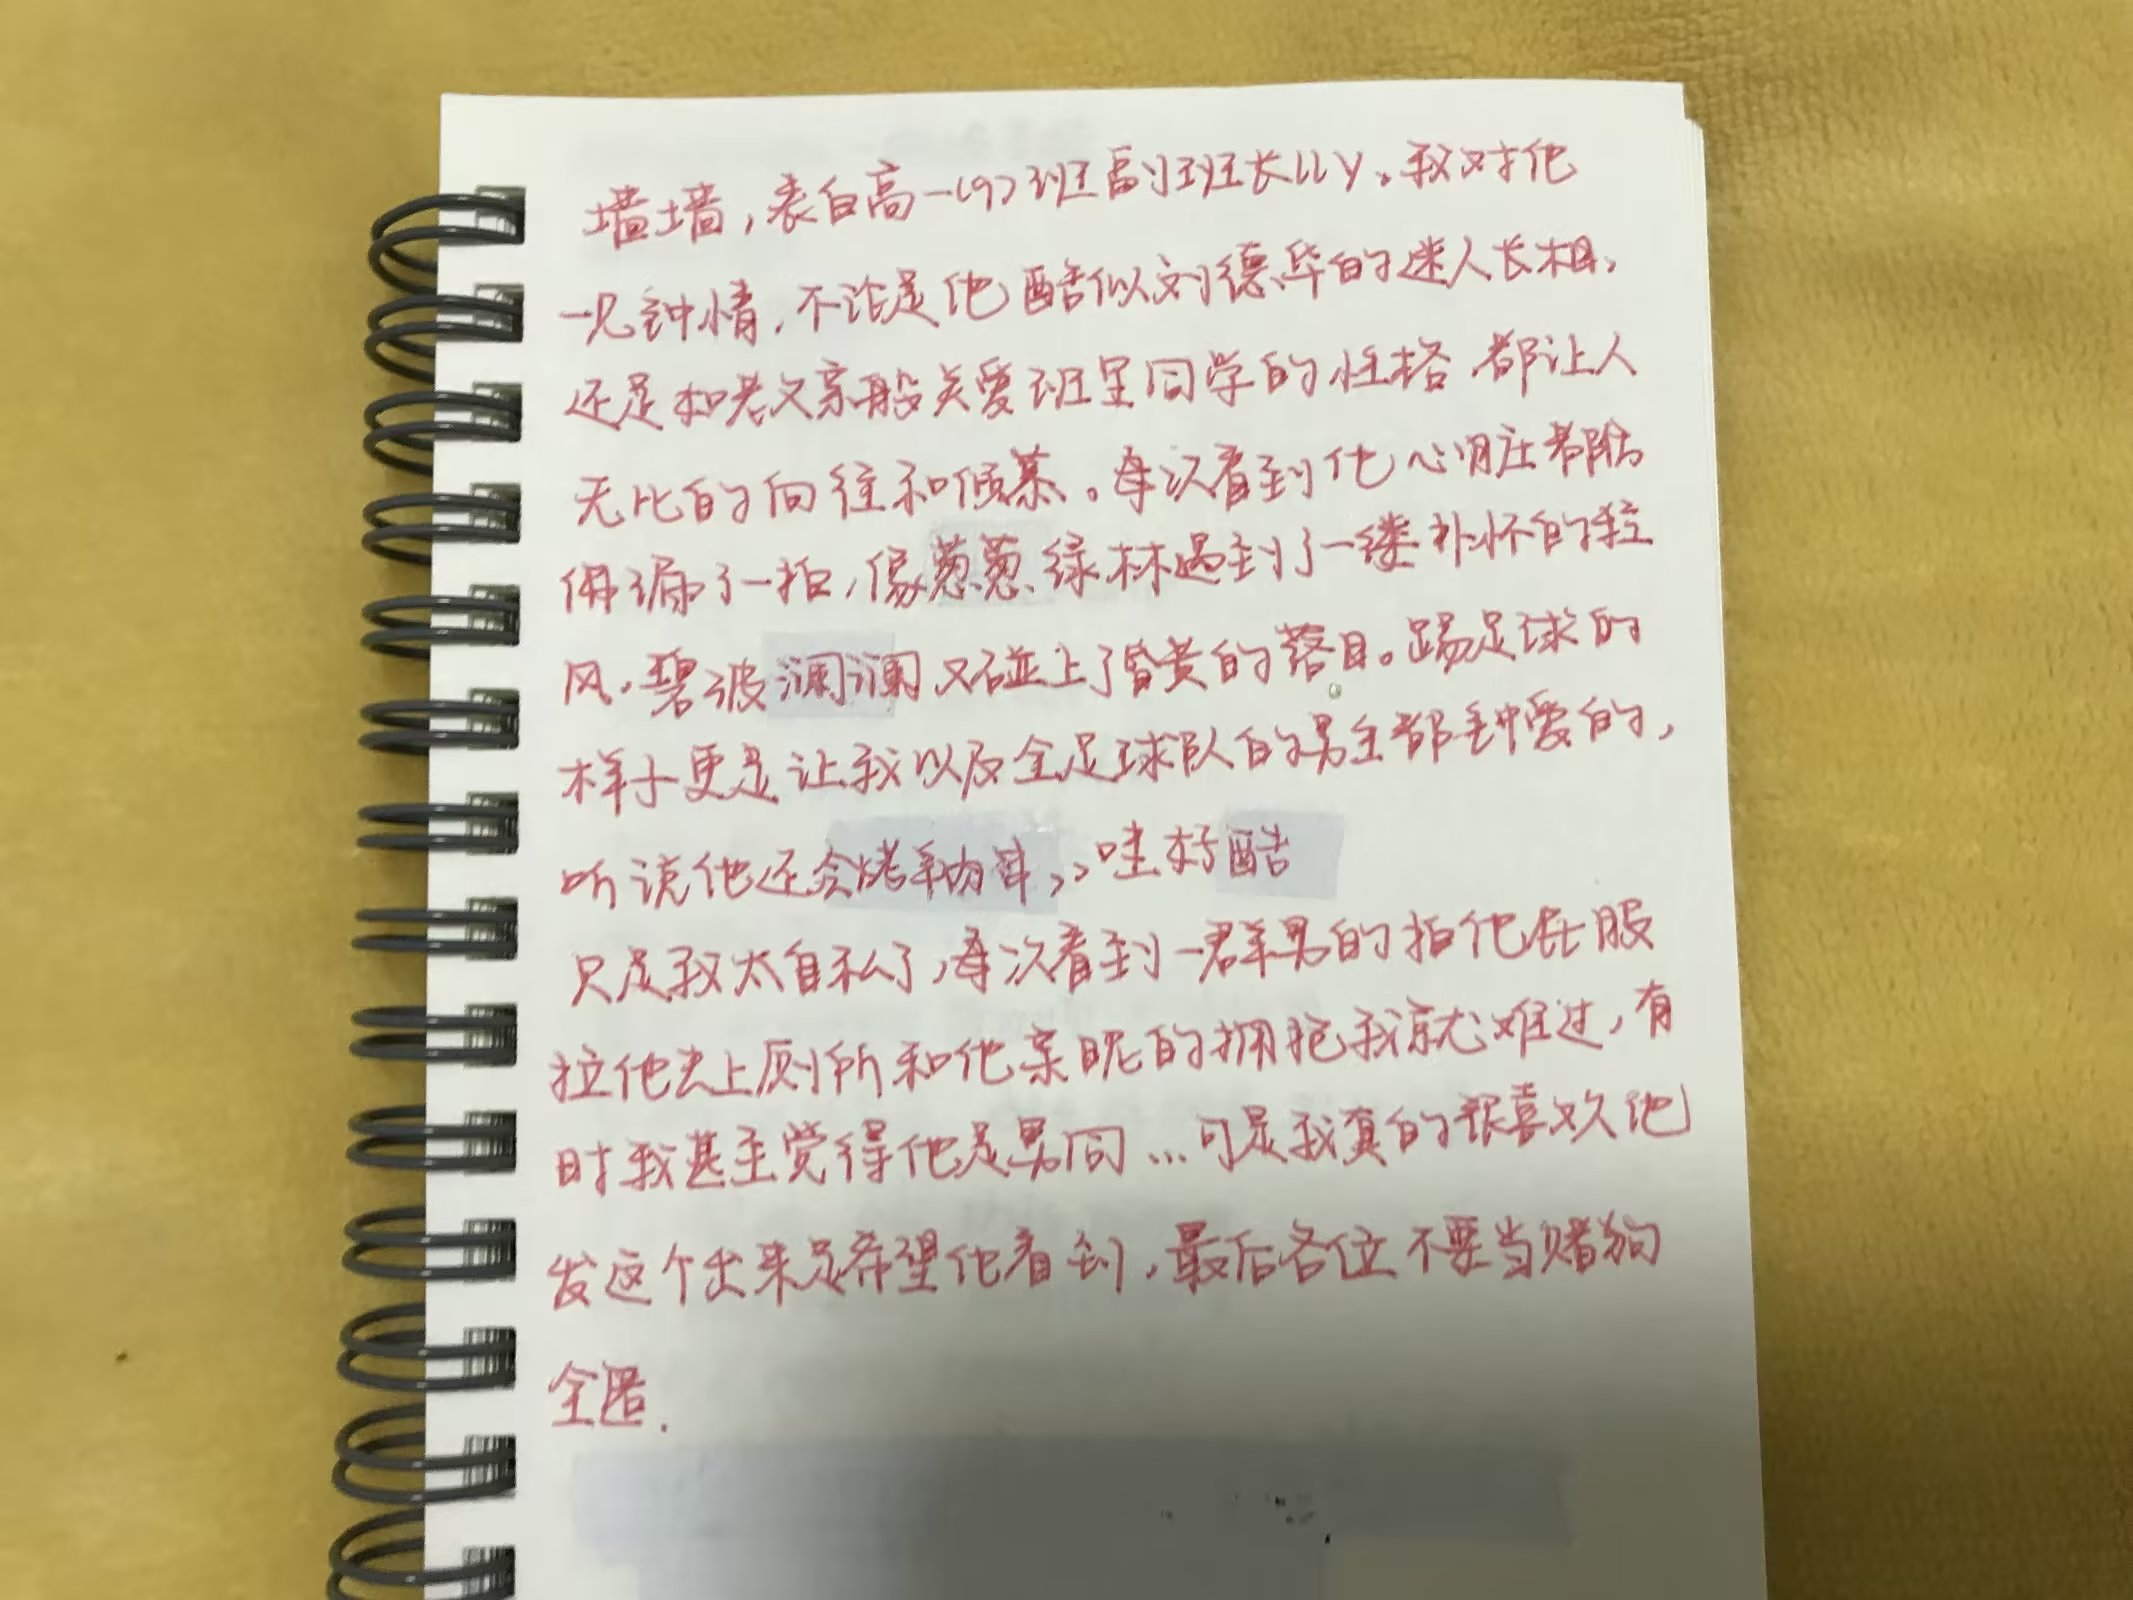 墙墙，表白高一(9)班副班长lly。我对他
一见钟情，不论是他酷似刘德华的迷人长相，
还是和老父亲般关爱班里同学的性格，都让人
无比的向往和倾慕。每次看到他心脏都
佛漏了一拍，像葱葱绿林遇到了一缕扑怀的轻
风，碧波澜澜又碰上了昏黄的落日。踢足球的
样子更是让我以及全足球队的男生都钟爱的，
听说他还会烤羊肉串，，哇好酷
只是我太自私了，每次看到一群男的拍他屁股
拉他去上厕所和他亲昵的拥抱我就难过，有
时我甚至觉得他是男同...可是我真的很喜欢他
发这个出来是希望他看到，最后各位不要当赌狗
全匿.